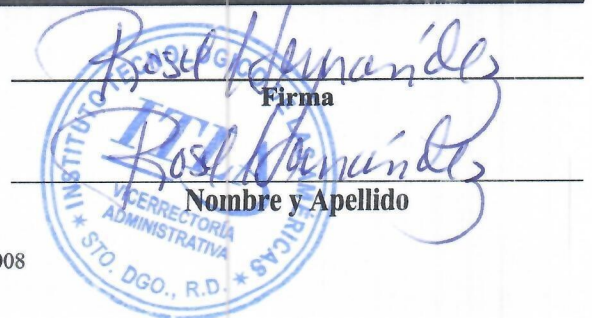 Rosel Hernández
Firma
Rosel Hernández
Nombre y Apellido
INSTITUTO TECNOLÓGICO DE LAS AMÉRICAS
ITLA
VICERRECTORÍA
ADMINISTRATIVA
* STO. DGO., R.D. *
008